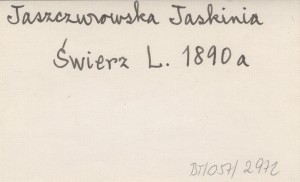 Jaszczurowska Jaskinia
Świerz L. 1890a
BJ/057/2972